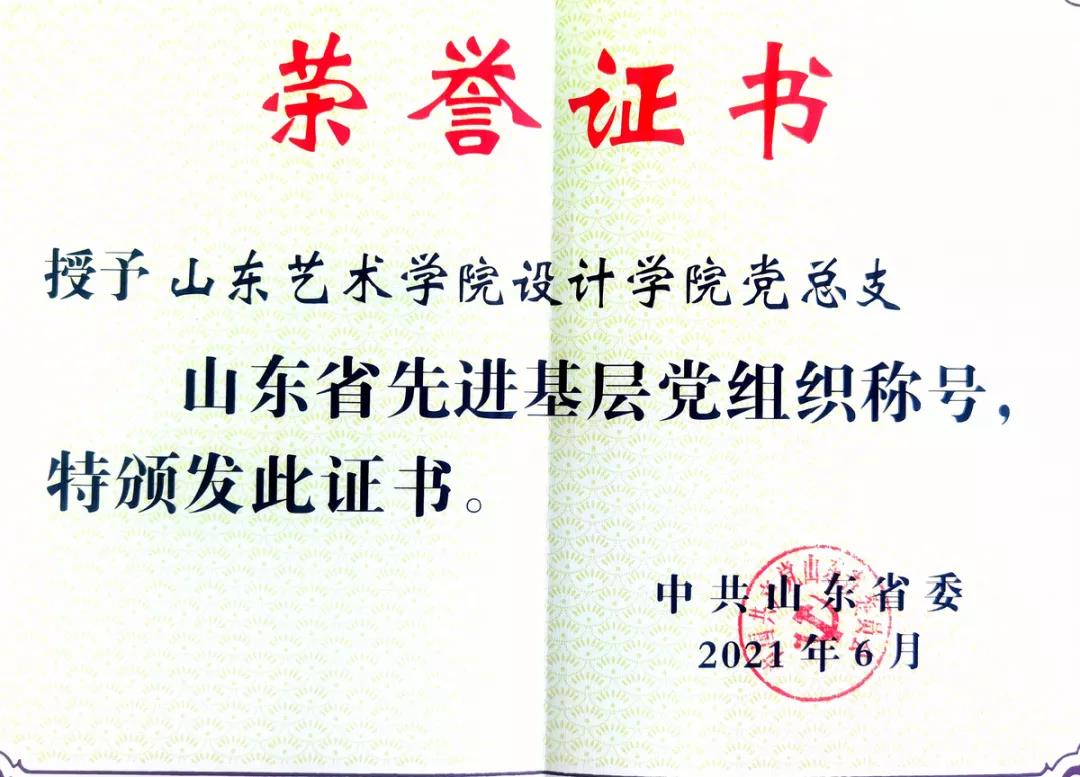 荣誉证书
授予 山东艺术学院设计学院党总支
山东省先进基层党组织称号，
特颁发此证书。
中共山东省委
2021年6月